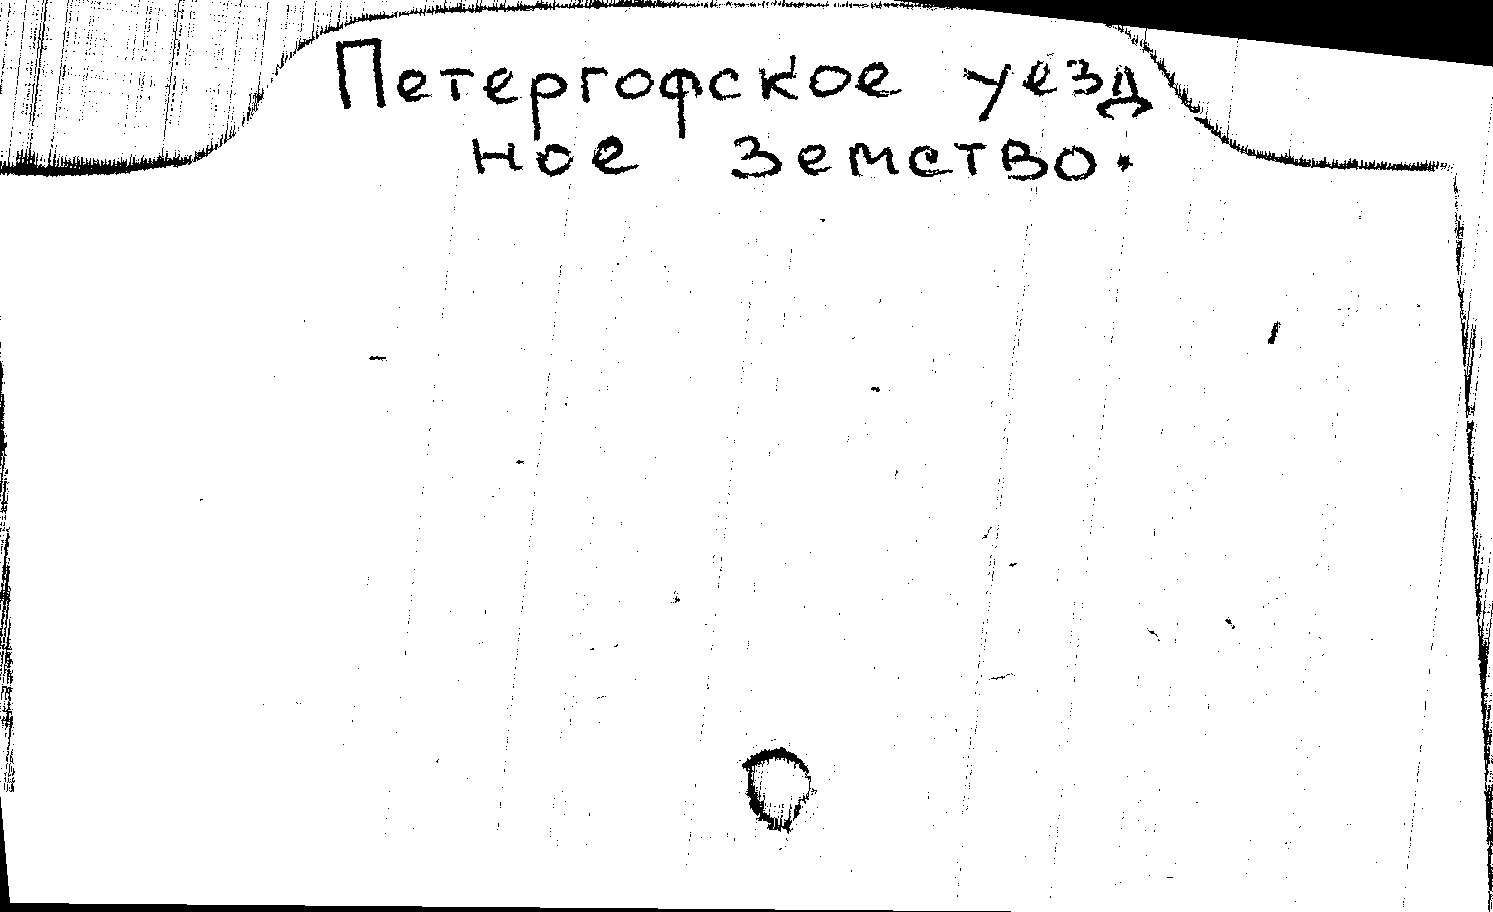 Петергофское уезд
ное земство.